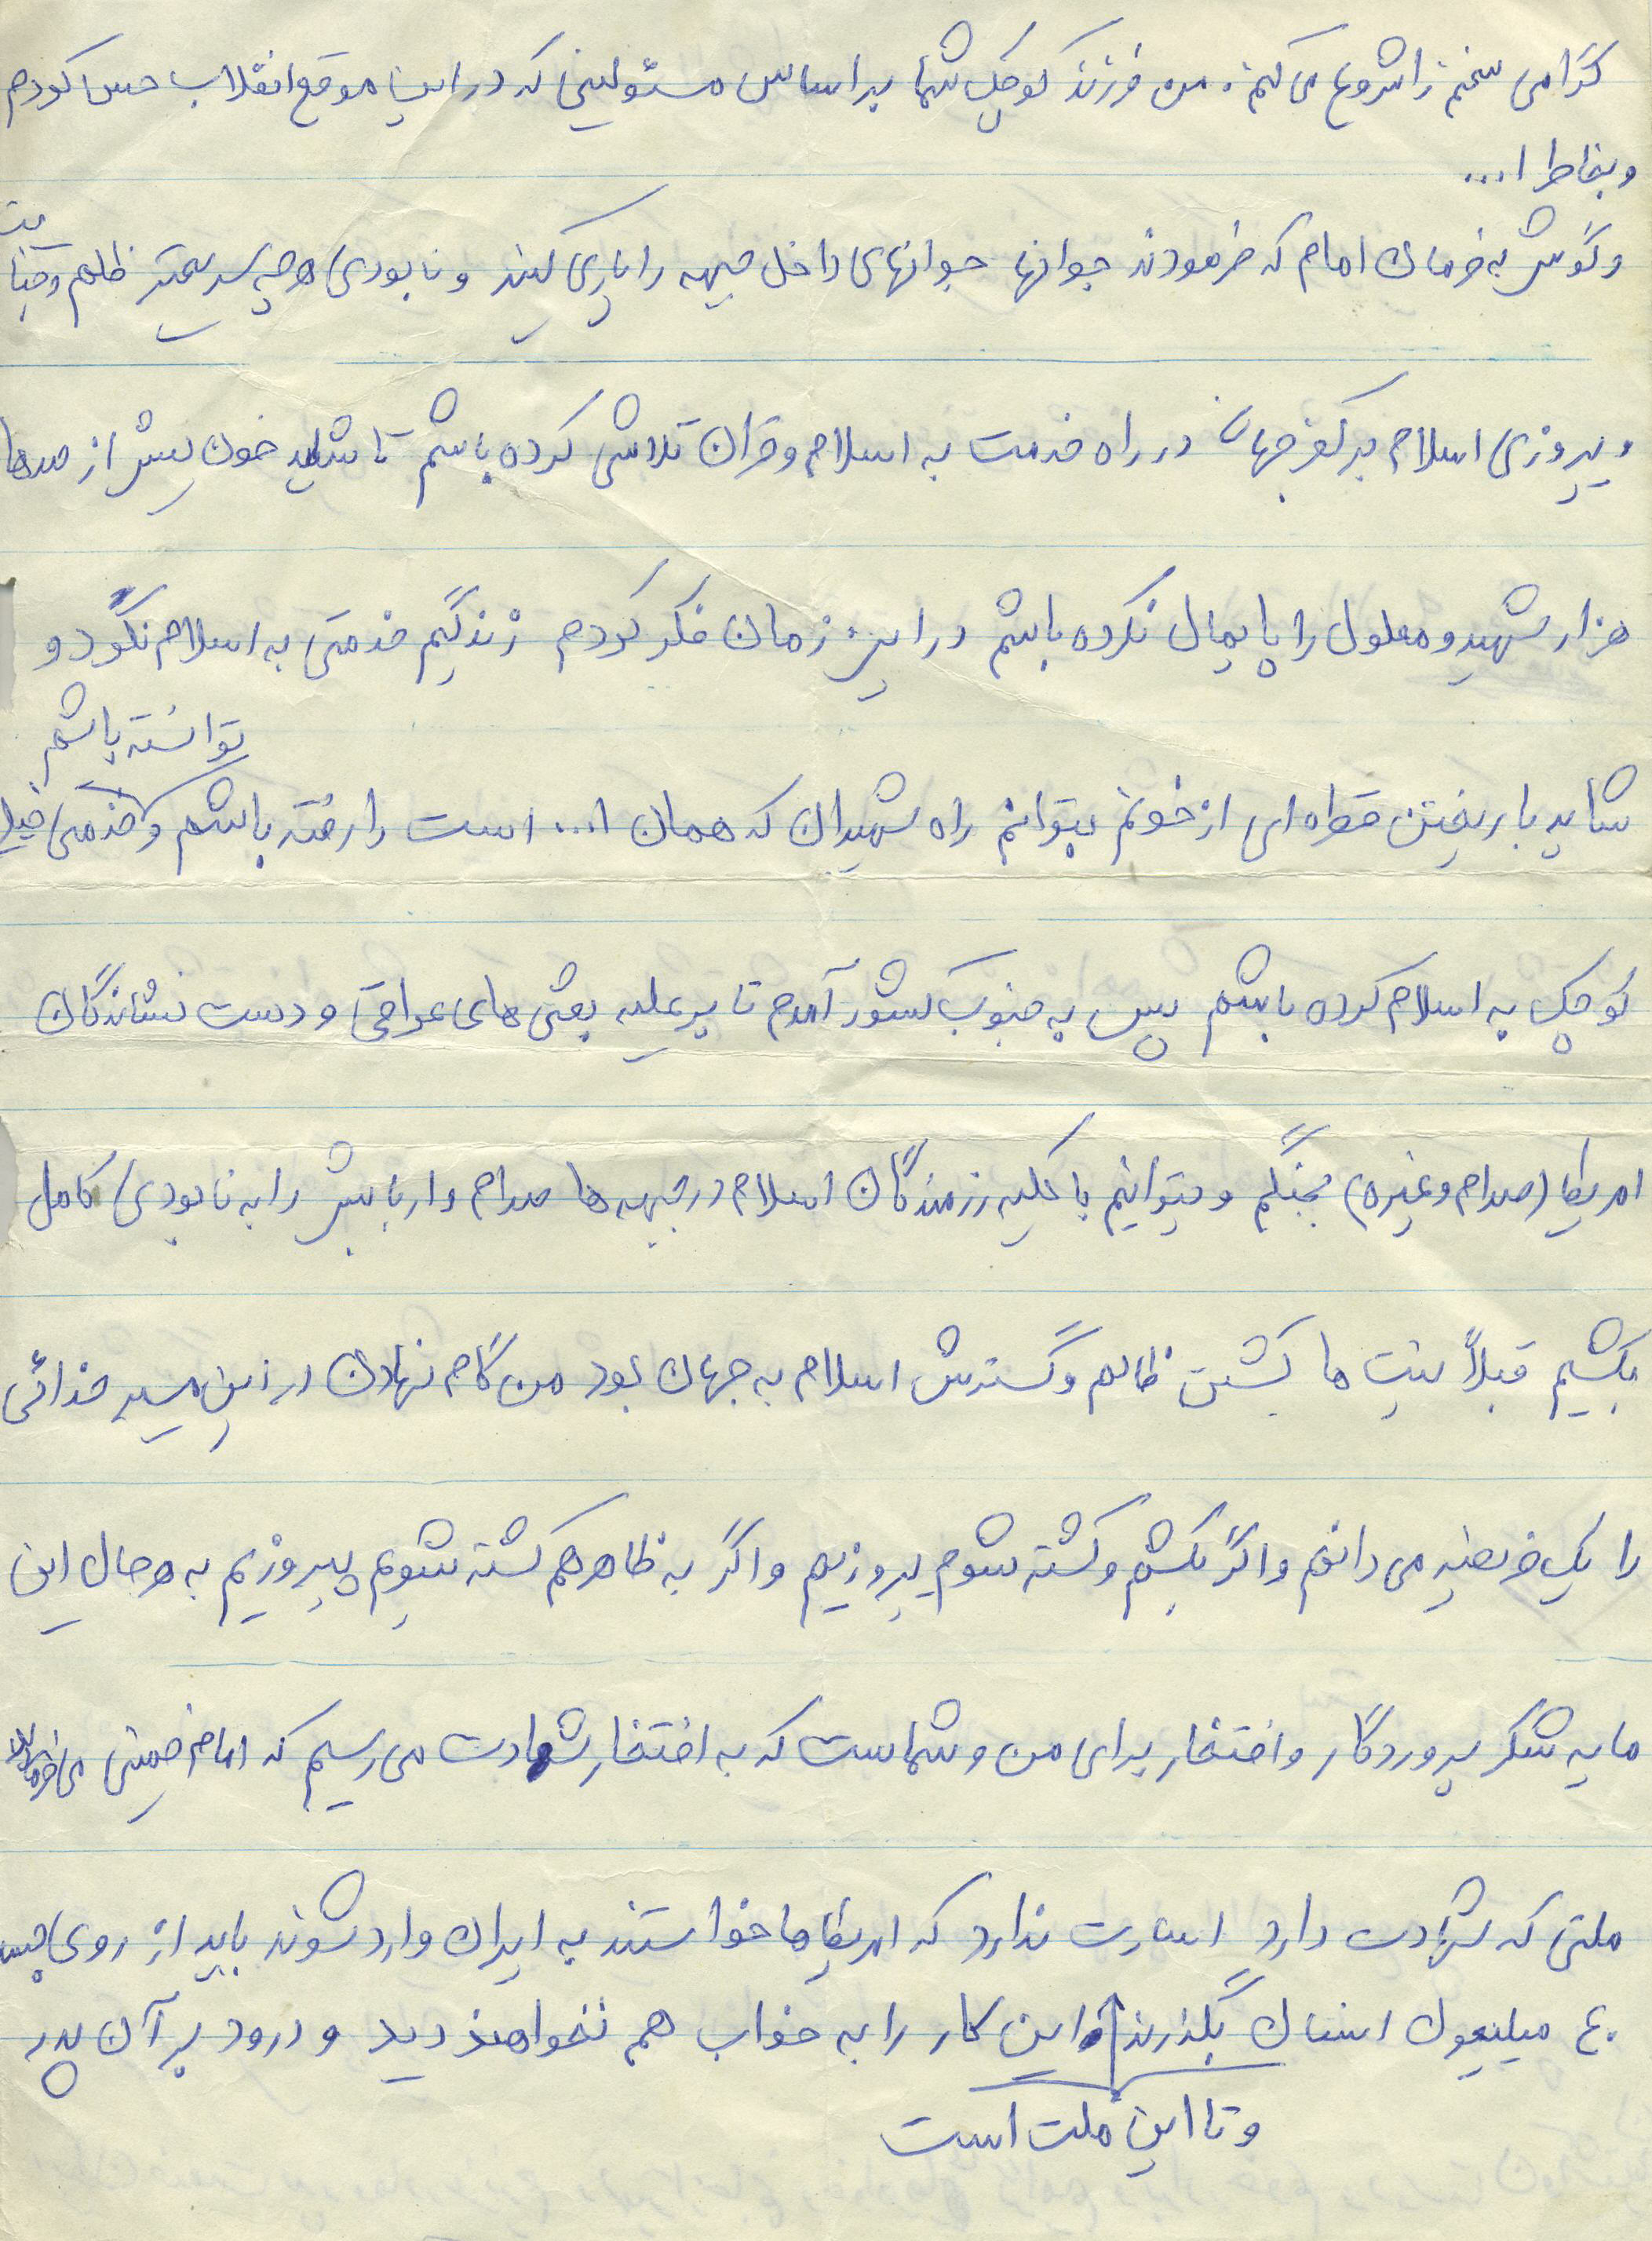 گرامی سخنم را شروع می کنم. من فرزند کوچک شما بر اساس مسئولیتی که در این موقع انقلاب حس کردم
و بخاطر ا...
و گوش به فرمان امام که فرمودند جوانها جوانهای داخل جبهه را یاری کنید و نابودی هر چه سریعتر ظلم و جنایت
و پیروزی اسلام بر کفر جهان در راه خدمت به اسلام و قران تلاشی کرده باشم تا شاید خون بیش از صدها
هزار شهید و معلول را پایمال نکرده باشم در این زمان فکر کردم زندگیم خدمتی به اسلام نکرد و
توانسته باشم
شاید با ریختن قطره ای از خونم بتوانم راه شهیدان که همان ا... است را رفته باشم و خدمتی خیلی
کوچک به اسلام کرده باشم پس به جنوب کشور آمدم تا بر علیه بعثی های عراقی و دست نشاندگان
امریکا (صدام و غیره) بجنگم و بتوانیم با کلیه رزمندگان اسلام در جبهه ها صدام و اربابش را به نابودی کامل
بکشیم قبلاً نیت ما کشتن ظالم و گسترش اسلام به جهان بود من گام نهادن در این مسیر خدائی
را یک فریضه می دانم و اگر بکشم و کشته شوم پیروزیم و اگر به ظاهر هم کشته شویم پیروزیم به هر حال این
مایه شکر پروردگار و افتخار برای من و شماست که به افتخار شهادت می رسیم که امام خمینی می فرماید
ملتی که شهادت دارد اسارت ندارد که امریکا ما خواستند به ایران وارد شوند باید از روی جسد
۴۰ میلیون انسان بگذرند این کار را به خواب هم نخواهند دید و درود بر آن پدر
و تا این ملت است